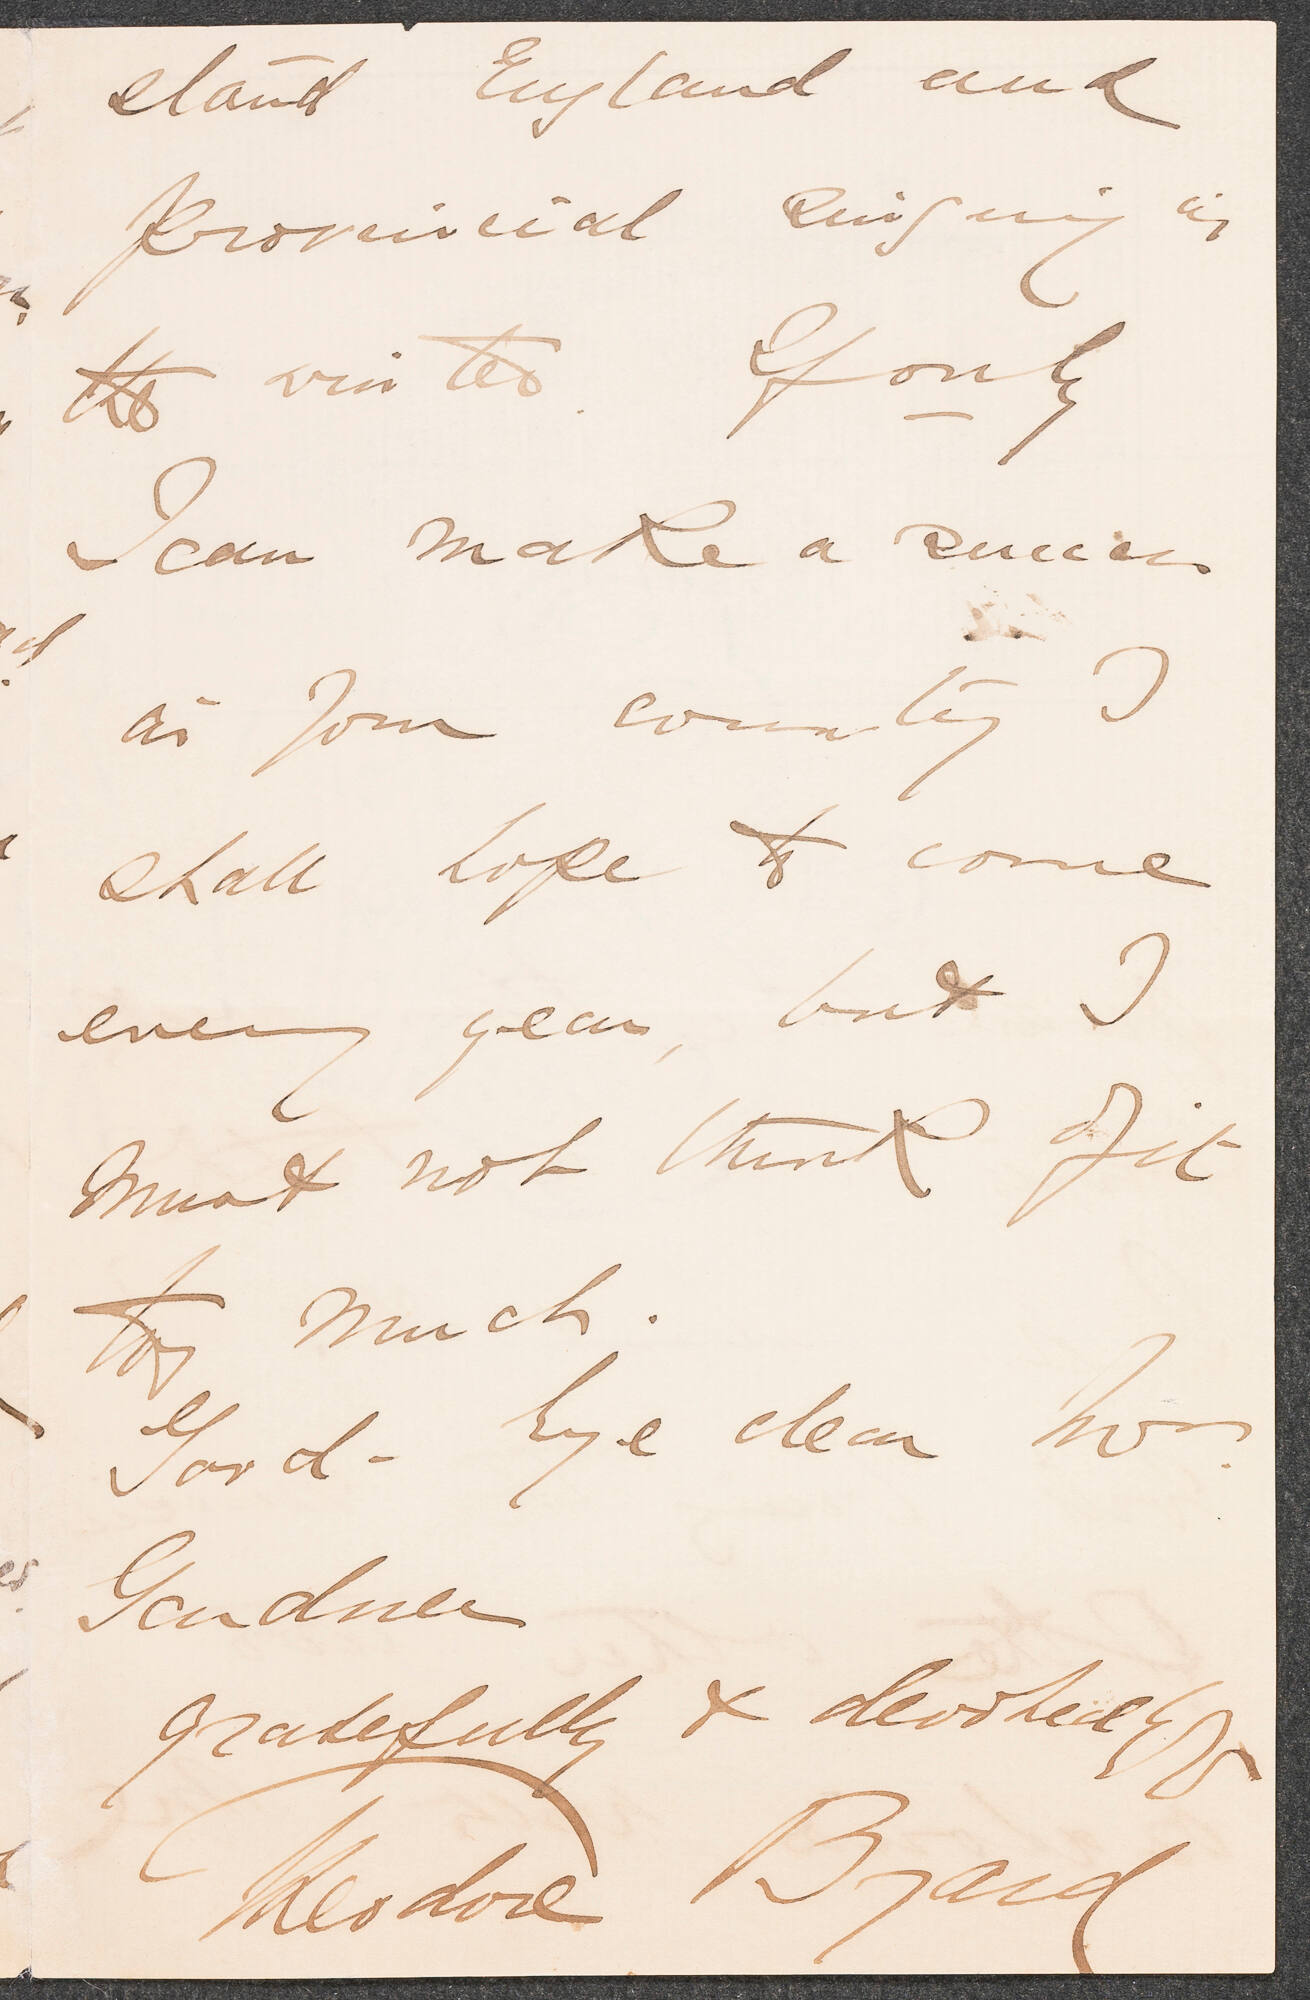 stand England and
provincial singing in
the winter. If only
I can make a success
in your country I
shall hope to come
every year, but I
must not think of it
too much.
Good-bye dear Mrs.
Gardner
gratefully & devotedly yrs
Theodore Byard